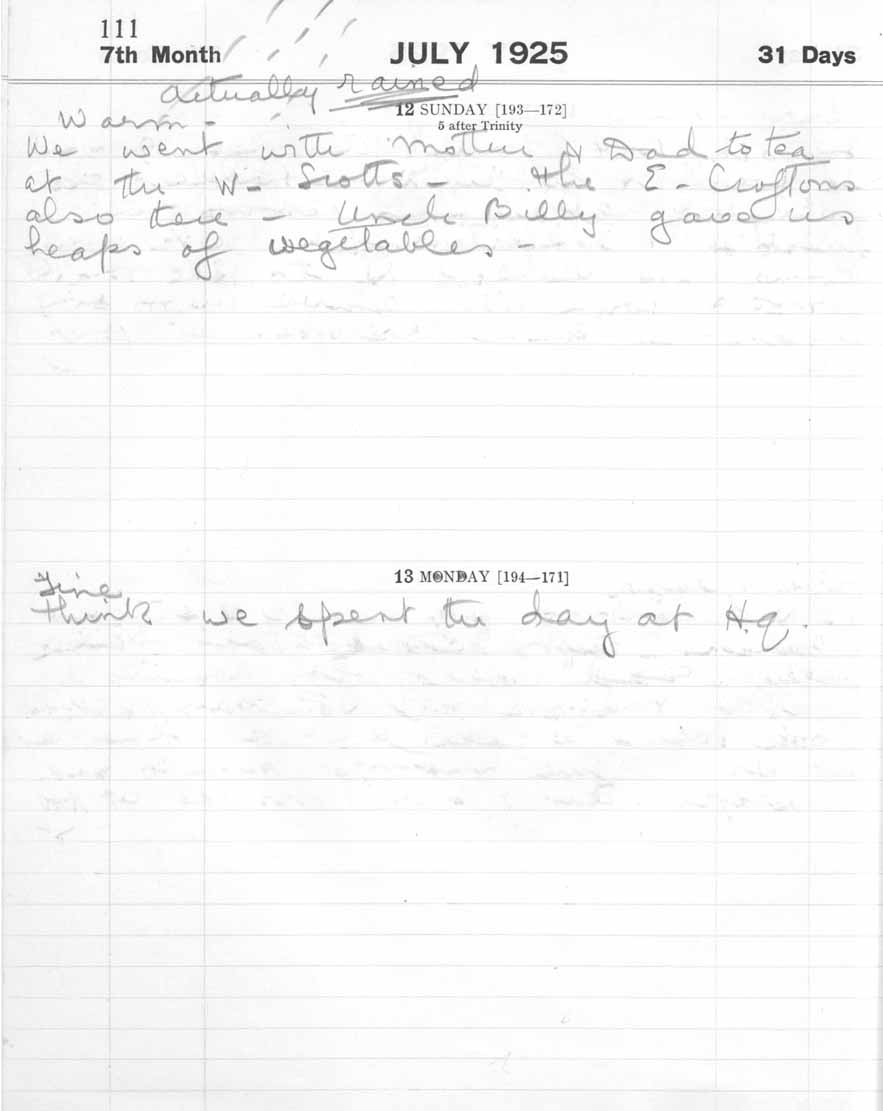 111
7th Month JULY 1925 31 Days
Actually rained
12 SUNDAY [193—172]
5 after Trinity
Warm -
We went with Mother & Dad to tea
at the W- Scotts - the E- Croftons
also tere - Uncle Billy gave us
heaps of vegetables -
13 MONDAY [194—171]
Fine
think we spent the day at H.Q.